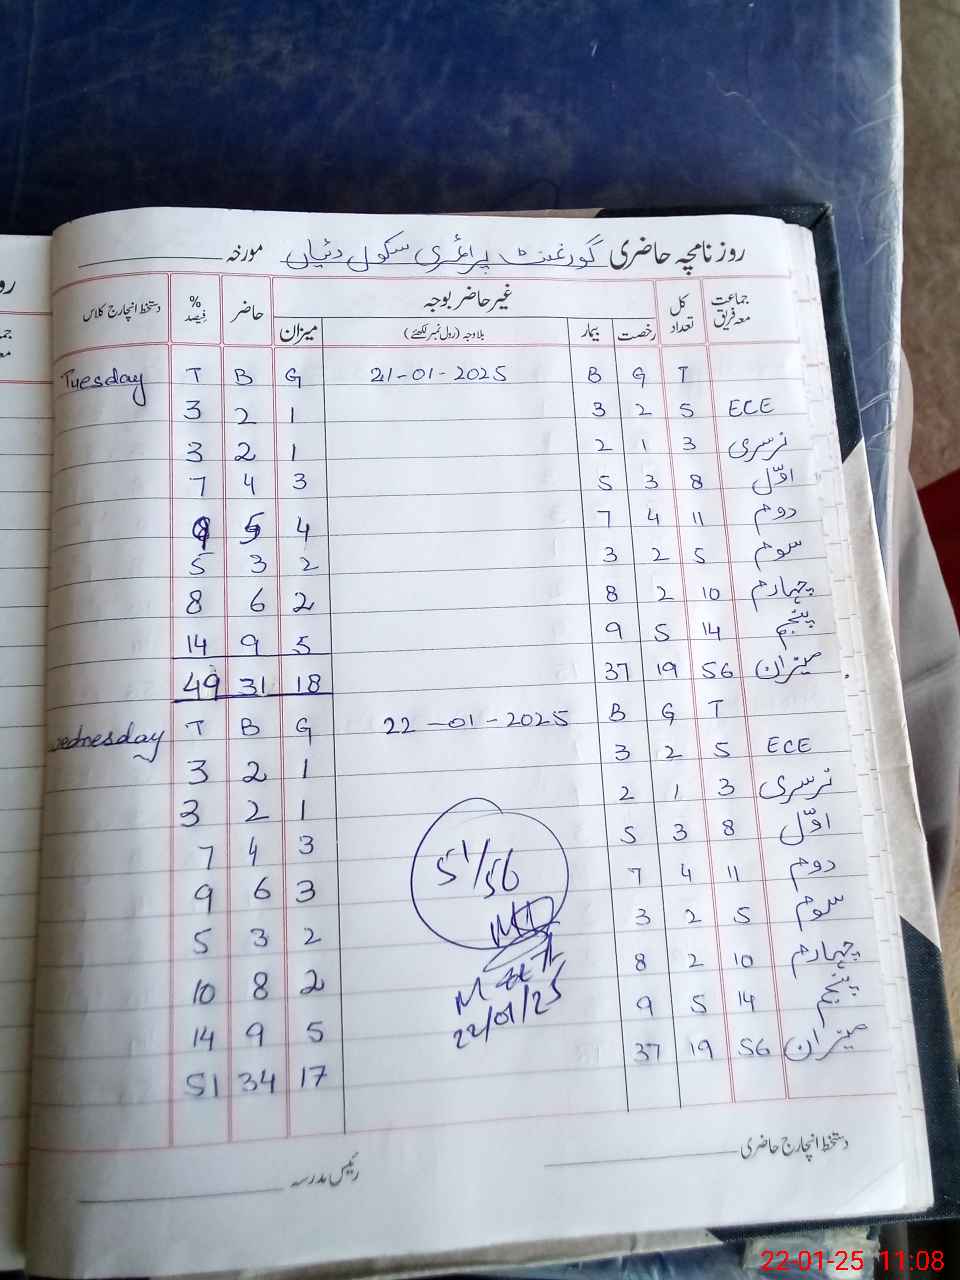 روزنامچہ حاضری گورنمنٹ پرائمری سکول دئیاں مورخہ
جماعت معہ فریق کل تعداد غیر حاضر بوجہ حاضر % فیصد دستخط انچارج کلاس
رخصت بیمار بلاوجہ (رول نمبر لکھئے) میزان
Tuesday T B G 21-01-2025 B G T
3 2 1 3 2 5 ECE
3 2 1 2 1 3 نرسری
7 4 3 5 3 8 اوّل
9 5 4 7 4 11 دوم
5 3 2 3 2 5 سوم
8 6 2 8 2 10 چہارم
14 9 5 9 5 14 پنجم
49 31 18 37 19 56 میزان
Wednesday T B G 22-01-2025 B G T
3 2 1 3 2 5 ECE
3 2 1 2 1 3 نرسری
7 4 3 5 3 8 اوّل
9 6 3 7 4 11 دوم
5 3 2 3 2 5 سوم
10 8 2 8 2 10 چہارم
14 9 5 9 5 14 پنجم
51 34 17 37 19 56 میزان
51/56
22/01/25
دستخط انچارج حاضری
رئیس مدرسہ
22-01-25 11:08